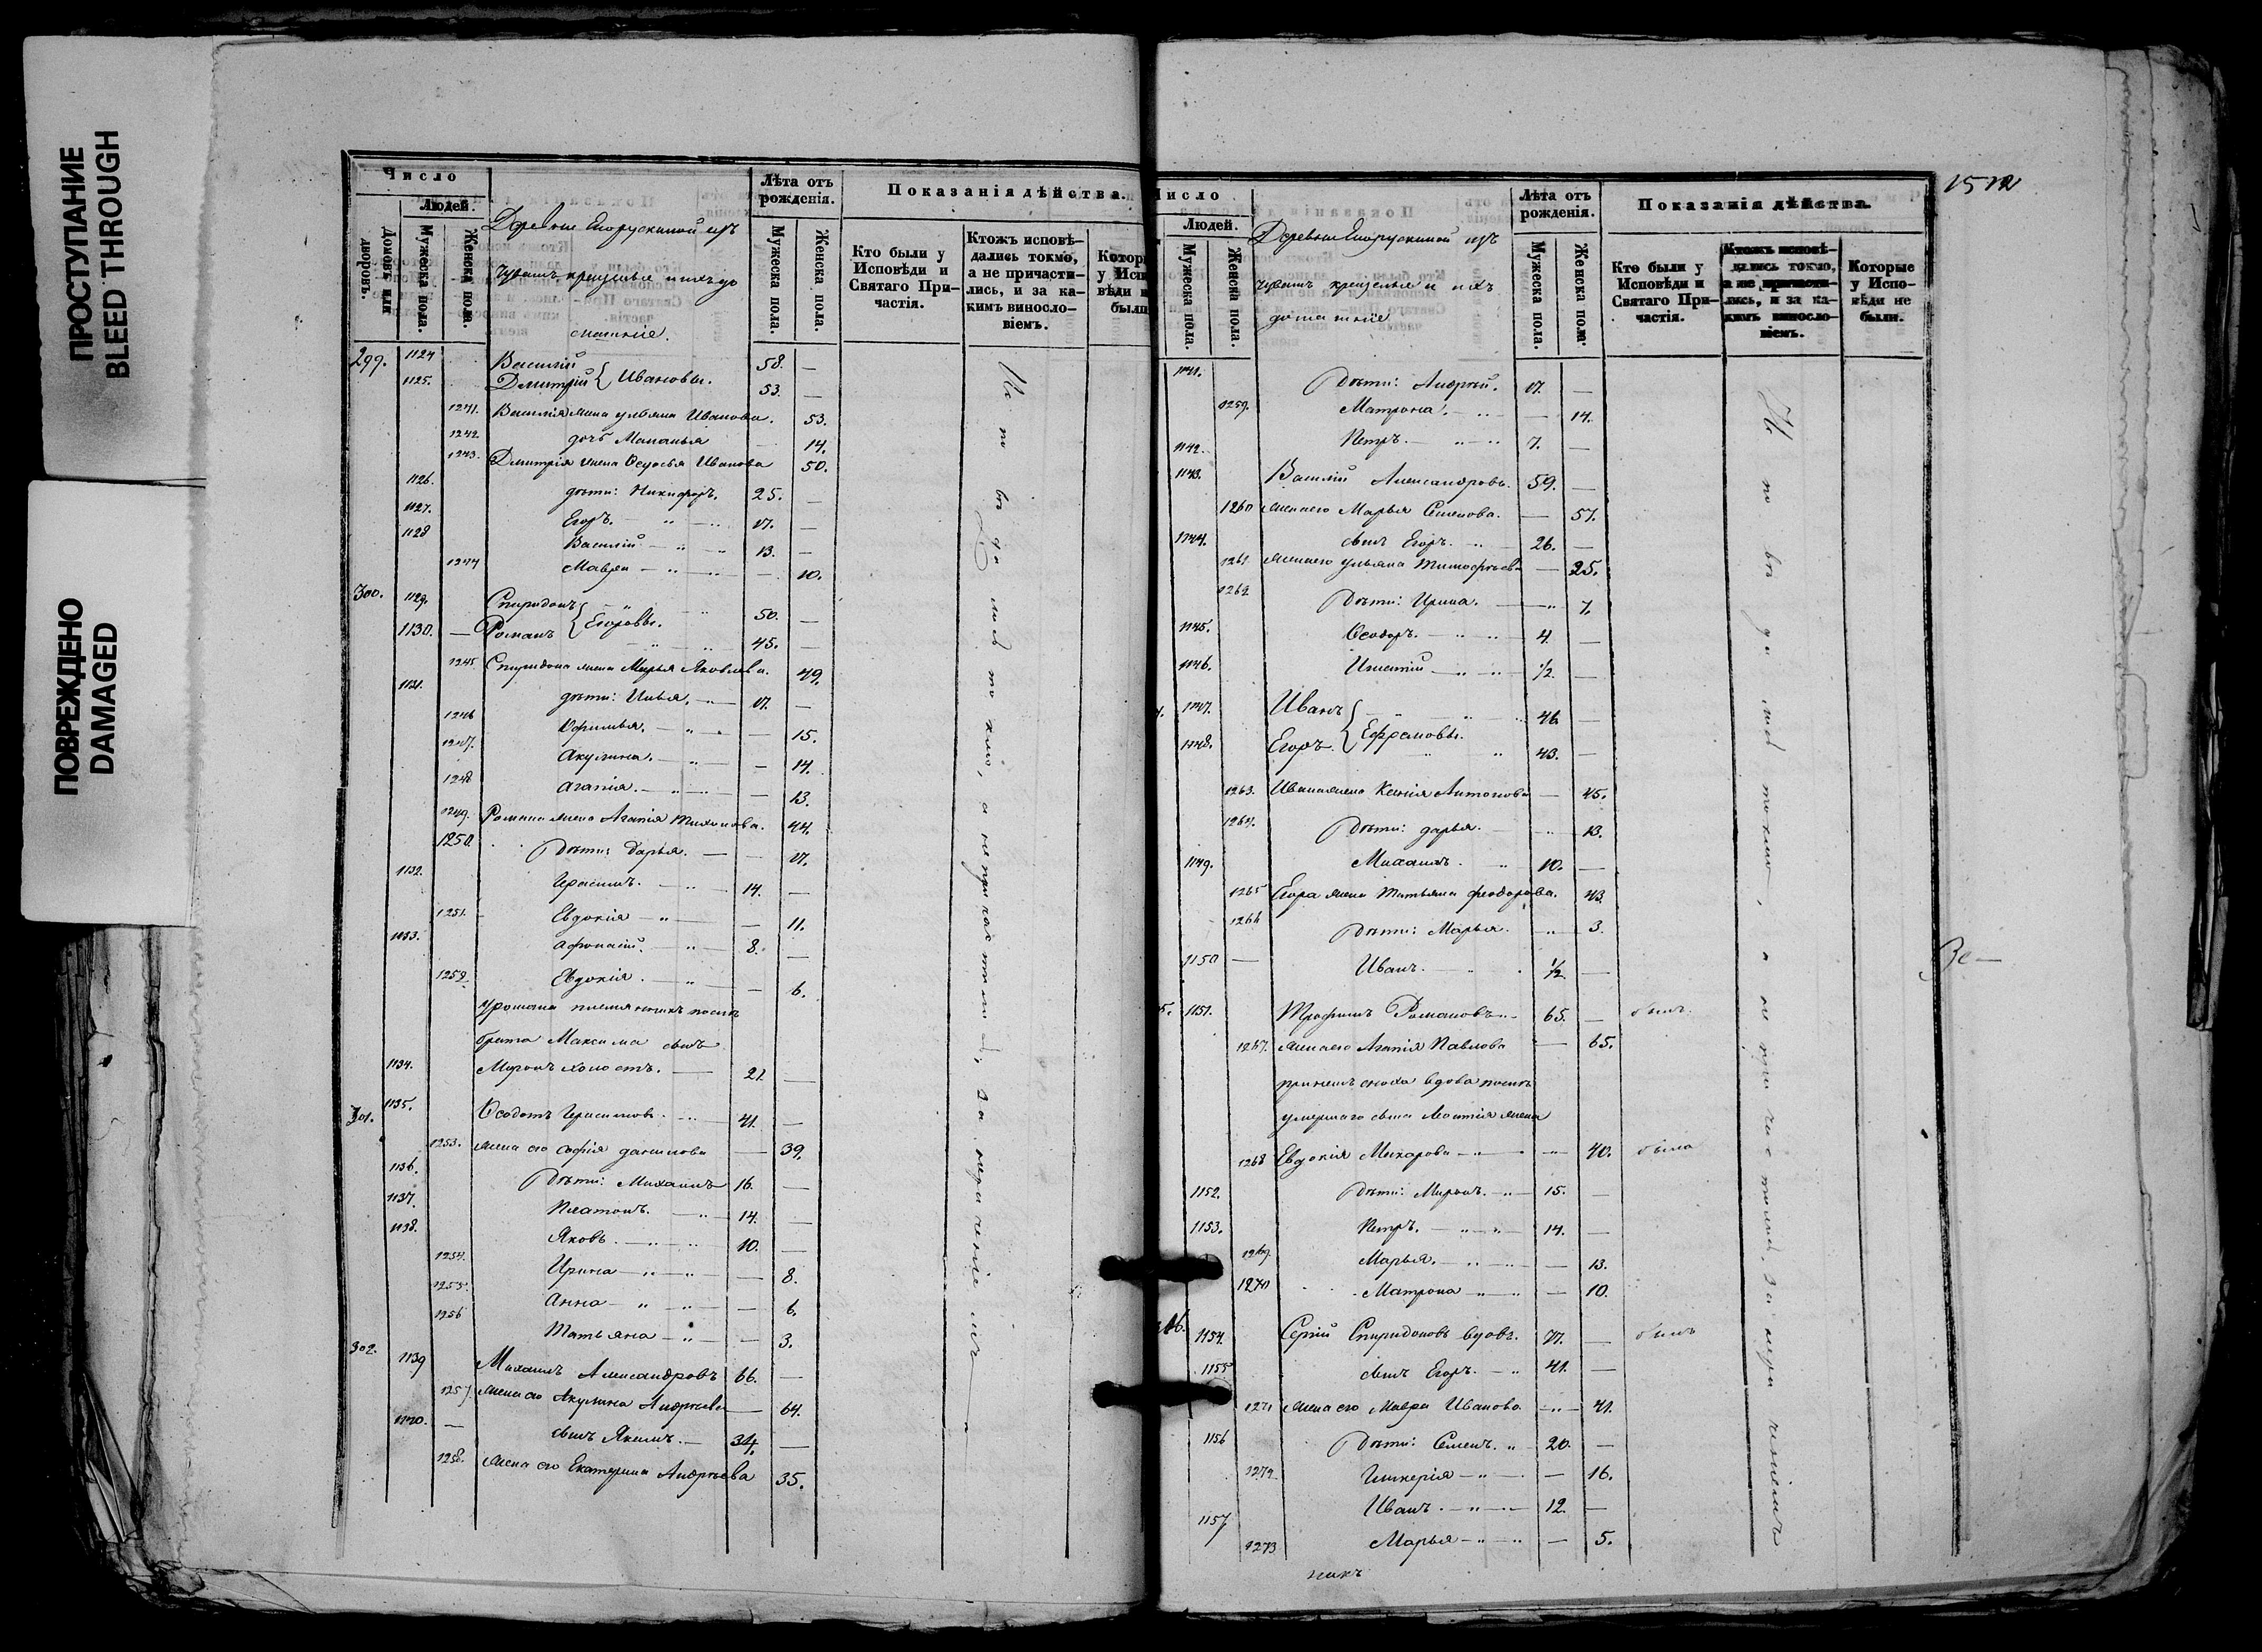 ПРОСТУПАНИЕ
BLEED THROUGH
ПОВРЕЖДЕНО
DAMAGED
Число
Людей.
Домовъ или дворовъ.
Мужеска пола.
Женска пола.
Деревни
Чувашъ крещеные и ихъ до
машніе.
Лѣта отъ рожденія.
Мужеска пола.
Женска пола.
Показанія дѣйства.
Кто были у Исповѣди и Святаго Причастія.
Ктожъ исповѣдались токмо, а не причастились, и за какимъ винословіемъ.
299. 1124 Василій 58. —
1125. Дмитрій { Ивановы. 53. —
1241. Василія жена Ульяна Иванова. 53.
1242. дочь Маланья — 14.
1243. Дмитрія жена Ѳедосья Иванова 50.
1126. дѣти: Никифоръ. 25. —
1127. Егоръ. 17. —
1128 Василій 13. —
1244 Мавра — 10.
300. 1129. Спиридонъ 50. —
1130. Романъ { Егоровы. 45. —
1245. Спиридона жена Марья Яковлева. 49.
1131. дѣти: Илья. 17. —
1246 Офимья. — 15.
1247. Акулина. — 14.
1248 Агапія. — 13.
1249. Романа жена Агапія 44.
1250. Дѣти: Дарья. — 17.
1132. Герасимъ. 14. —
1251. Евдокія — 11.
1133. Афонасій. 8. —
1252. Евдокія. — 6.
У Романа племянникъ послѣ
брата Максима сынъ
1134. Миронъ холостъ. 21. —
301. 1135. Ѳедотъ Герасимовъ. 41. —
1253. жена его Софія Данилова — 39.
1136. Дѣти: Михаилъ 16. —
1137. Платонъ. 14. —
1138. Яковъ. 10. —
1254. Ирина — 8.
1255. Анна — 6.
1256 Татьяна — 3.
302. 1139 Михаилъ Александровъ 66. —
1257. жена его Акулина Андреева — 64.
1140. сынъ Якимъ. 34. —
1258. жена его Екатерина Андреева 35.
Исповѣдались токмо, а не причастились, за
Число
Людей.
Мужеска пола.
Женска пола.
Деревни
Чувашъ крещеные и ихъ
домашніе
Лѣта отъ рожденія.
Мужеска пола.
Женска пола.
Показанія дѣйства.
Кто были у Исповѣди и Святаго Причастія.
Ктожъ исповѣдались токмо, а не причастились, и за какимъ винословіемъ.
Которые у Исповѣди не были.
1141. Дѣти: Андрей. 17. —
1259. Матрона. — 14.
1142. Петръ. 7. —
1143. Василій Александровъ. 59. —
1260 жена его Марья Семенова. — 57.
1144. сынъ Егоръ. 26. —
1261. жена его Ульяна Тимофеева — 25.
1262 Дѣти: Ирина. 7.
1145. Ѳеодоръ. 4. —
1146. Игнатій 1/2. —
1147. Иванъ 46. —
1148. Егоръ. { Ефремовы. 43. —
1263. Ивана жена Ксенія Антонова — 45.
1264. Дѣти: Дарья. 13.
1149. Михаилъ. 10. —
1265 Егора жена Татьяна Феодорова. 43.
1266 Дѣти: Марья. 3.
1150 Иванъ. 1/2. —
1151. Трофимъ Романовъ. 65. — былъ.
1267. жена его Агапія Павлова — 65.
при нихъ сноха вдова послѣ
умершаго сына жена
1268 Евдокія Макарова 40. была
1152. Дѣти: Миронъ. 15. —
1153. Петръ. 14. —
1269. Марья. — 13.
1270 Матрона — 10.
1154. Сергій Спиридоновъ вдовъ. 77. — былъ
1155 сынъ Егоръ. 41. —
1271 жена его Мавра Иванова 41.
1156 Дѣти: Семенъ. 20. —
1272 Гликерія — 16.
1157 Иванъ. 12. —
1273 Марья — 5.
Исповѣдались токмо, а не причастились, за